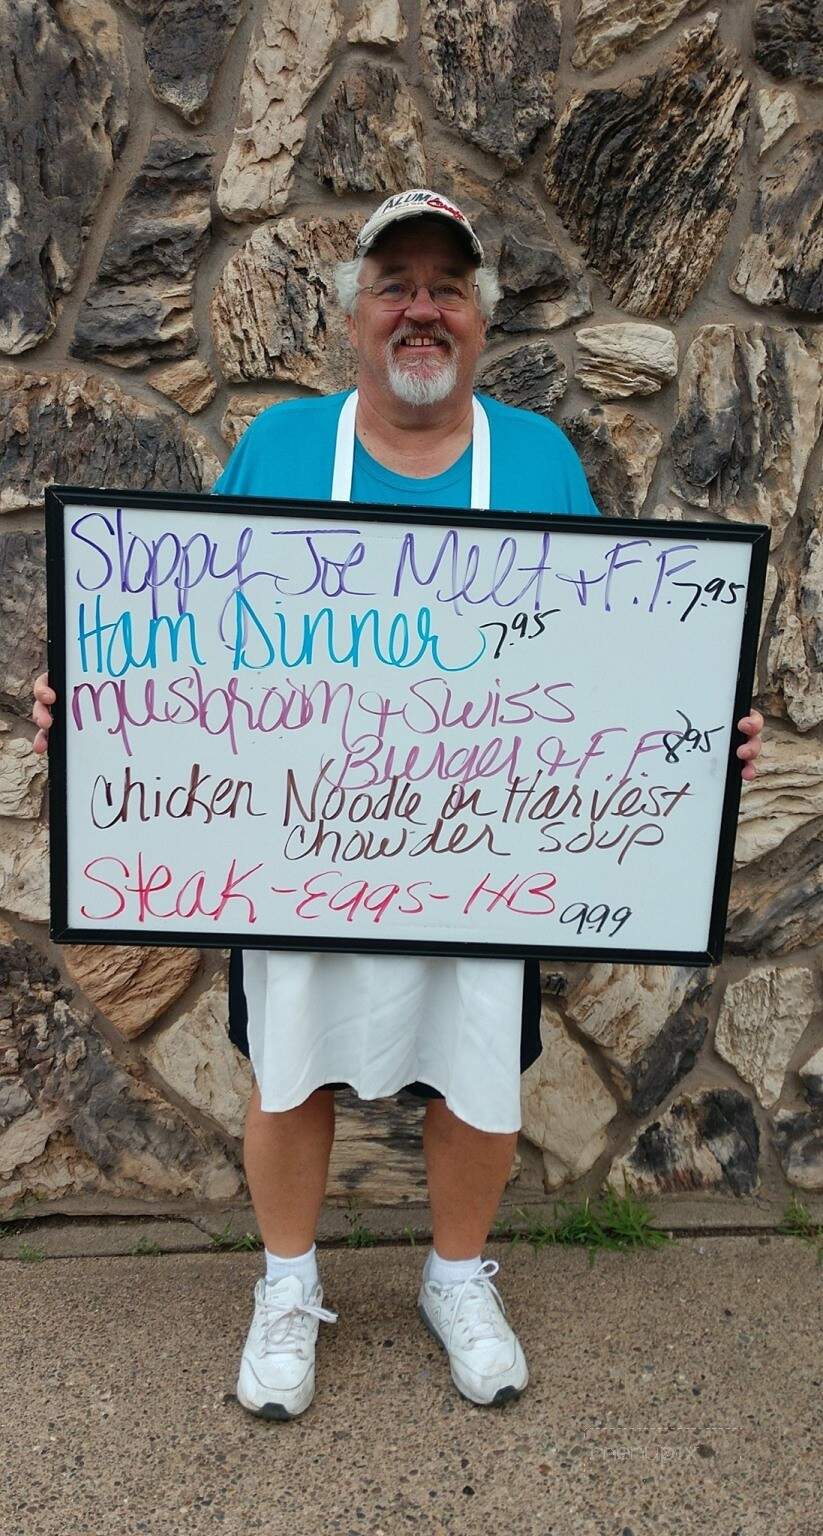 ALUMACraft
Sloppy Joe Melt & F.F. 7.95
Ham Dinner 7.95
mushroom & Swiss
Burger & F.F. 8.95
Chicken Noodle or Harvest
chowder soup
Steak-Eggs-HB 999
menupix